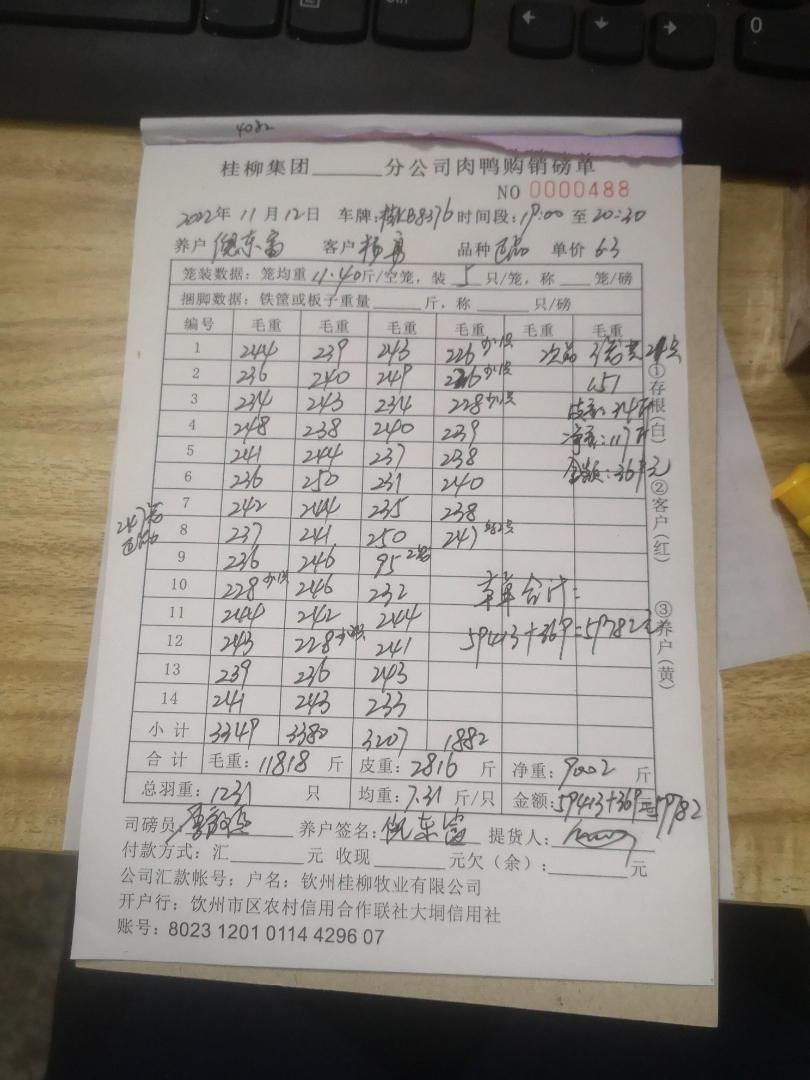 4082
桂柳集团______分公司肉鸭购销磅单
NO 0000488
2022年 11月 12日 车牌:桂KB8376 时间段:19:00 至 20:30
养户 倪东富 客户 杨勇 品种 正品 单价 6.3
笼装数据：笼均重 11.40 斤/空笼，装 5 只/笼，称 ___ 笼/磅
捆脚数据：铁筐或板子重量______斤，称______只/磅
编号 毛重 毛重 毛重 毛重 毛重 毛重
1 244 239 243 226 少1只 次品
2 236 240 249 226 少1只 151
3 234 243 234 228 少1只 皮重:34斤
4 248 238 240 239 净重:117斤
5 241 244 237 238 金额:369元
6 236 250 231 240
7 242 244 235 238
8 237 241 250 247
9 236 246 95 2笼
10 228 少1只 246 232 车单合计:
11 244 242 244 59413+369=59782元
12 243 228 241
13 239 236 243
14 241 243 233
小计 3349 3380 3207 1882
合计 毛重：11818 斤 皮重：2816 斤 净重：9002 斤
总羽重：1231 只 均重：7.31 斤/只 金额:59413+369=59782
247笼
正品
①存根(白)
②客户(红)
③养户(黄)
司磅员: 养户签名:倪东富 提货人:
付款方式：汇______元 收现______元欠（余）:______元
公司汇款帐号：户名：钦州桂柳牧业有限公司
开户行：钦州市区农村信用合作联社大垌信用社
账号：8023 1201 0114 4296 07